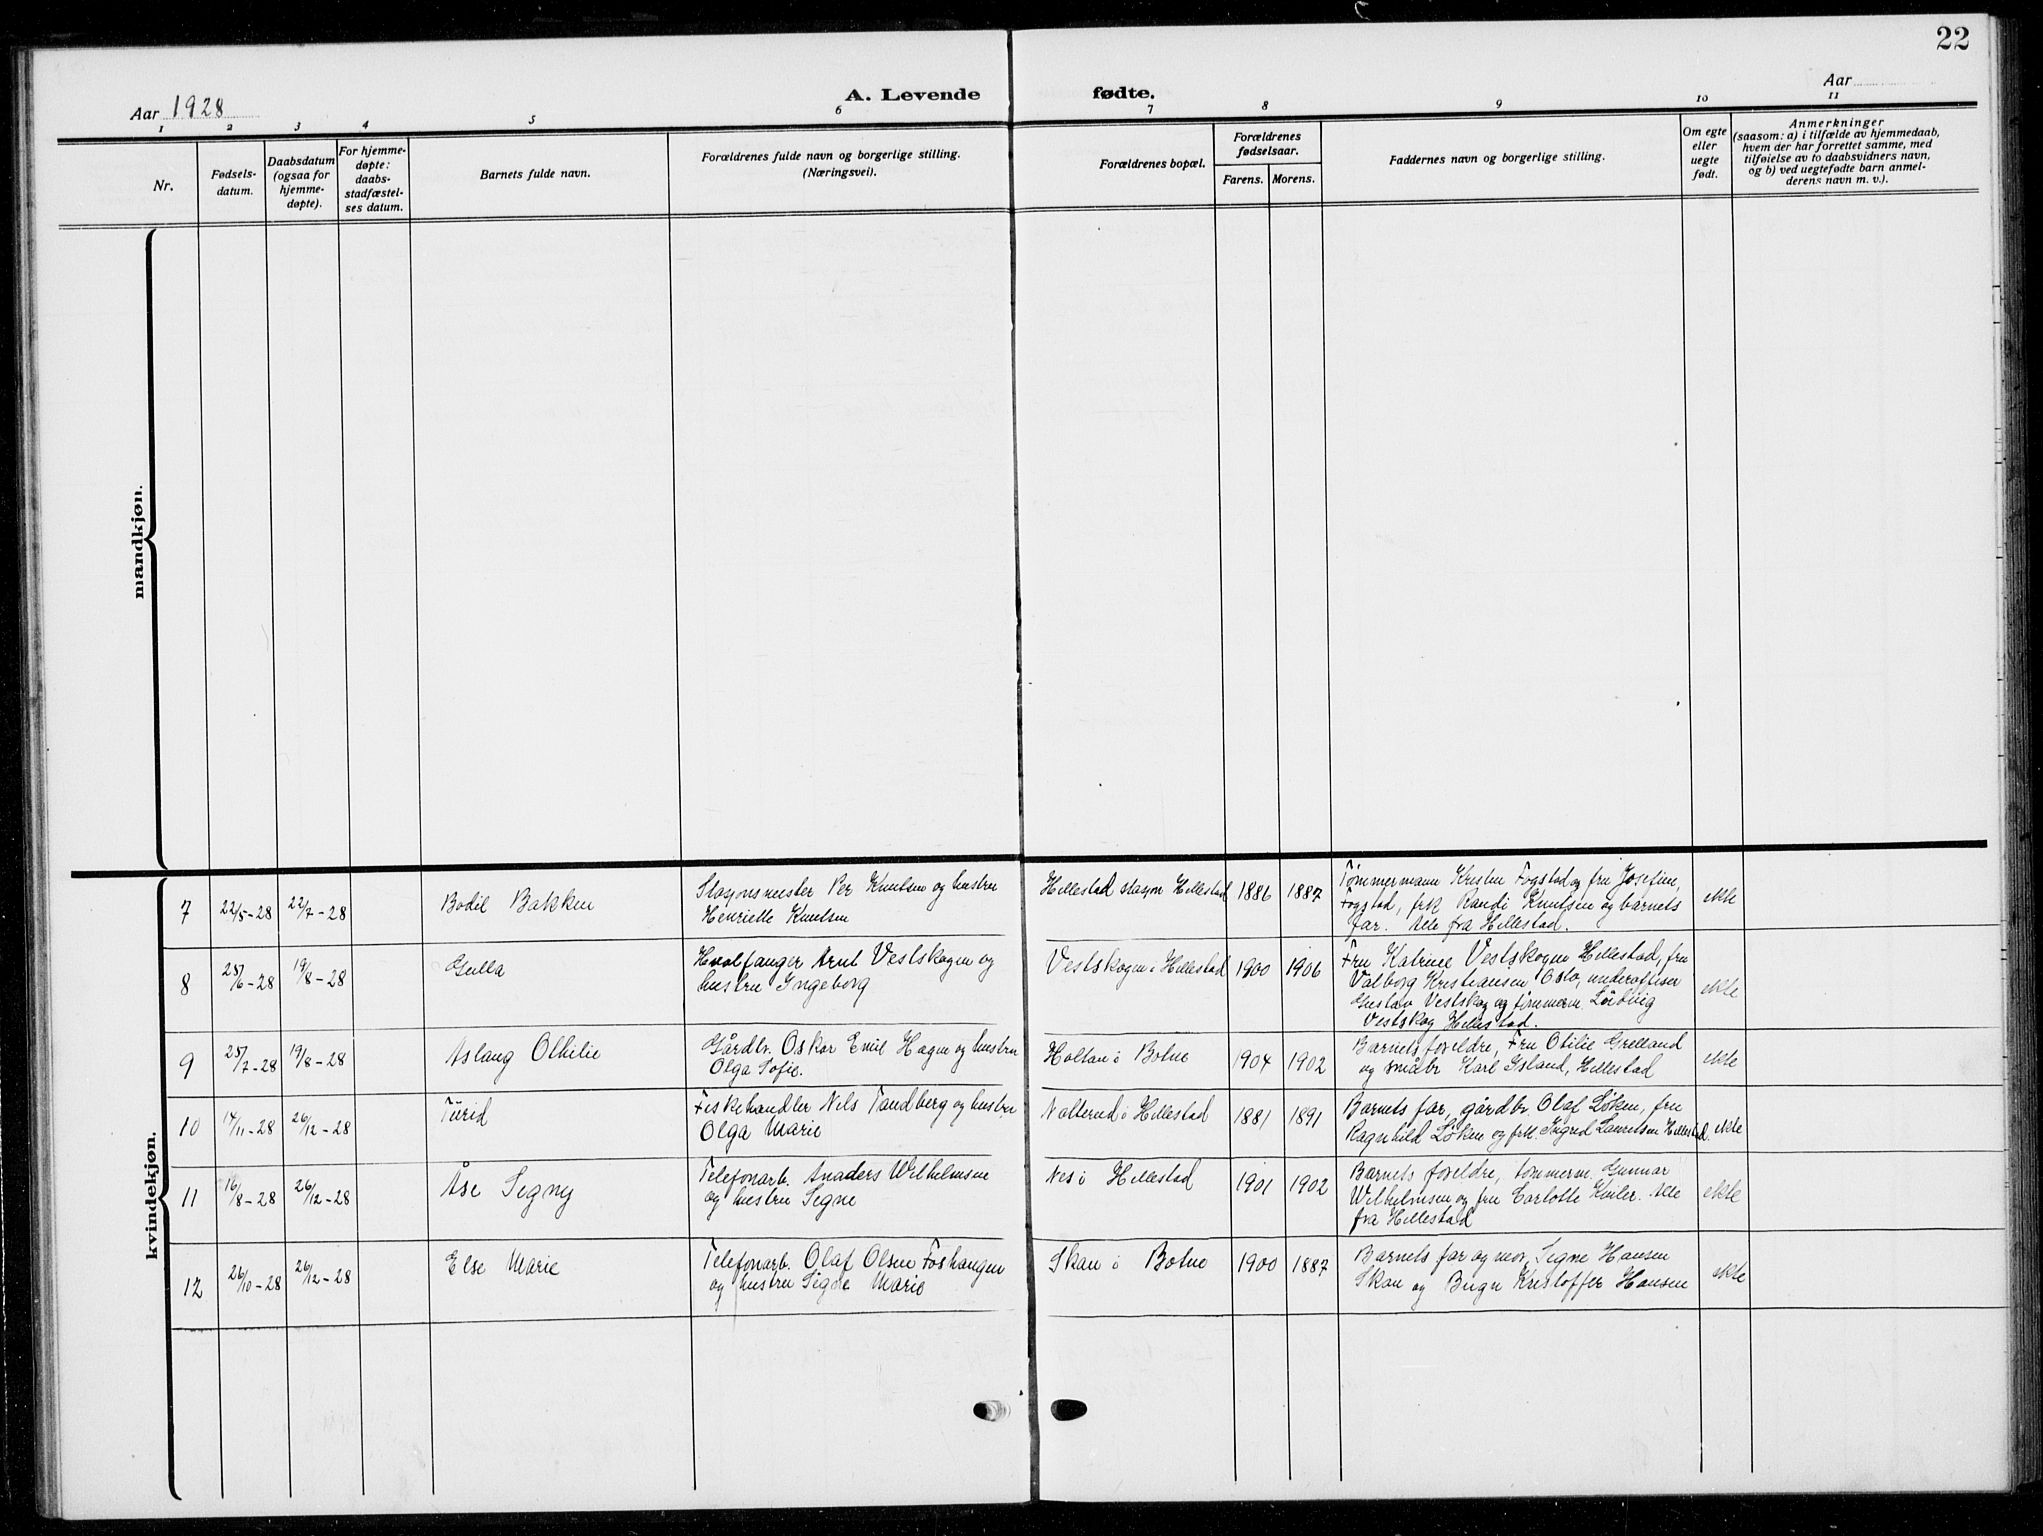 22
Aar 1928
A. Levende fødte.
Aar
1 2 3 4 5 6 7 8 9 10 11
Nr.
Fødsels-
datum.
Daabsdatum
(ogsaa for
hjemme-
døpte).
For hjemme-
døpte:
daabs-
stadfæstel-
ses datum.
Barnets fulde navn.
Forældrenes fulde navn og borgerlige stilling.
(Næringsvei).
Forældrenes bopæl.
Forældrenes
fødselsaar.
Farens. Morens.
Faddernes navn og borgerlige stilling.
Om egte
eller
uegte
født.
Anmerkninger
(saasom: a) i tilfælde av hjemmedaab,
hvem der har forrettet samme, med
tilføielse av to daabsvidners navn,
og b) ved uegtefødte barn anmel-
derens navn m. v.).
mandkjøn.
kvindekjøn.
7
22/5-28
22/7-28
Bodil Bakken
Stasjonsmester Per Knutsen og hustru
Henriette Knutsen
Hillestad stasjon Hillestad
1886
1887
Tømmermann Kristen Fogstad og fru Josefine
Fogstad, frk Randi Knutsen og barnets
far. Alle fra Hillestad.
ekte
8
25/6-28
19/8-28
Gulla
Hvalfanger Arnt Vestskogen og
hustru Ingeborg
Vestskogen i Hillestad
1900
1906
Fru Katrine Vestskogen Hillestad, fru
Valborg Kristiansen Oslo, underoffiser
Gustav Vestskog og tømmerm. Ludvig
Vestskog Hillestad.
ekte
9
25/7-28
19/8-28
Aslaug Othilie
Gårdbr. Oskar Emil Hagen og hustru
Olga Sofie.
Holtan i Botne
1904
1902
Barnets foreldre, Fru Otilie Grelland
og småbr Karl Island, Hillestad
ekte
10
14/11-28
26/12-28
Turid
Fiskehandler Nils Tandberg og hustru
Olga Marie
Nolterud i Hillestad
1881
1891
Barnets far, gårdbr. Olaf Løken, fru
Ragnhild Løken og frk. Ingrid Lauritsen Hillestad.
ekte
11
16/8-28
26/12-28
Åse Signy
Telefonarb. Anaders Wilhelmsen
og hustru Signe
Nes i Hillestad
1901
1902
Barnets foreldre, tømmerm. Gunnar
Wilhelmsen og fru Carlotte. Alle
fra Hillestad
ekte
12
26/10-28
26/12-28
Else Marie
Telefonarb. Olaf Olsen Foshaugen
og hustru Signe Marie
Skan i Botne
1900
1887
Barnets far og mor, Signe Hansen
Skan og Kristoffer Hansen
ekte